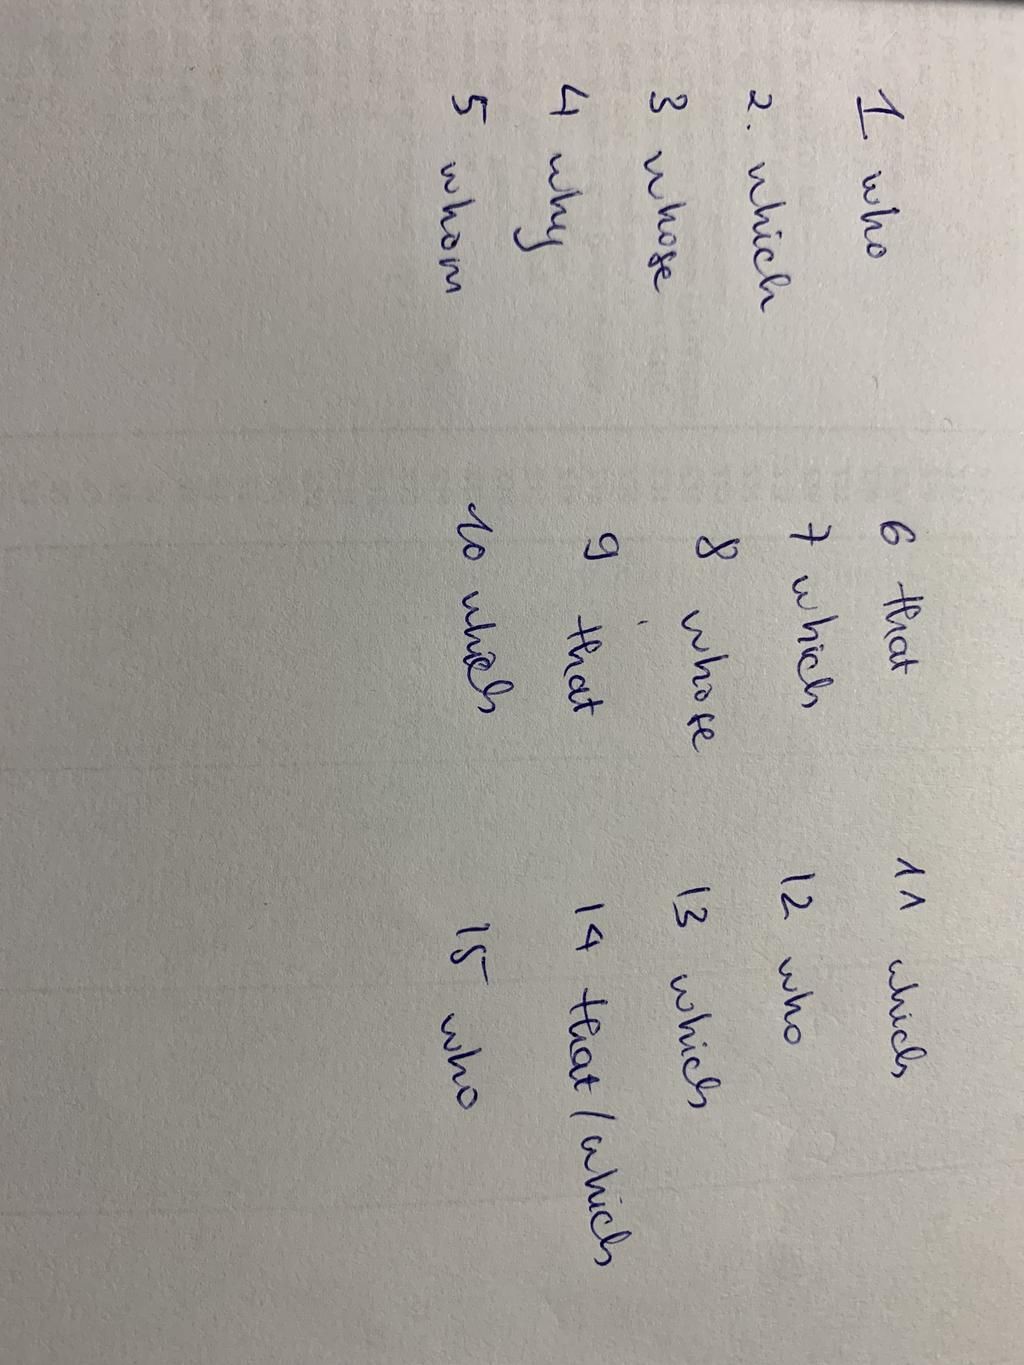 1 who
2. which
3 whose
4 why
5 whom
6 that
7 which
8 whose
9 that
10 which
11 which
12 who
13 which
14 that/which
15 who